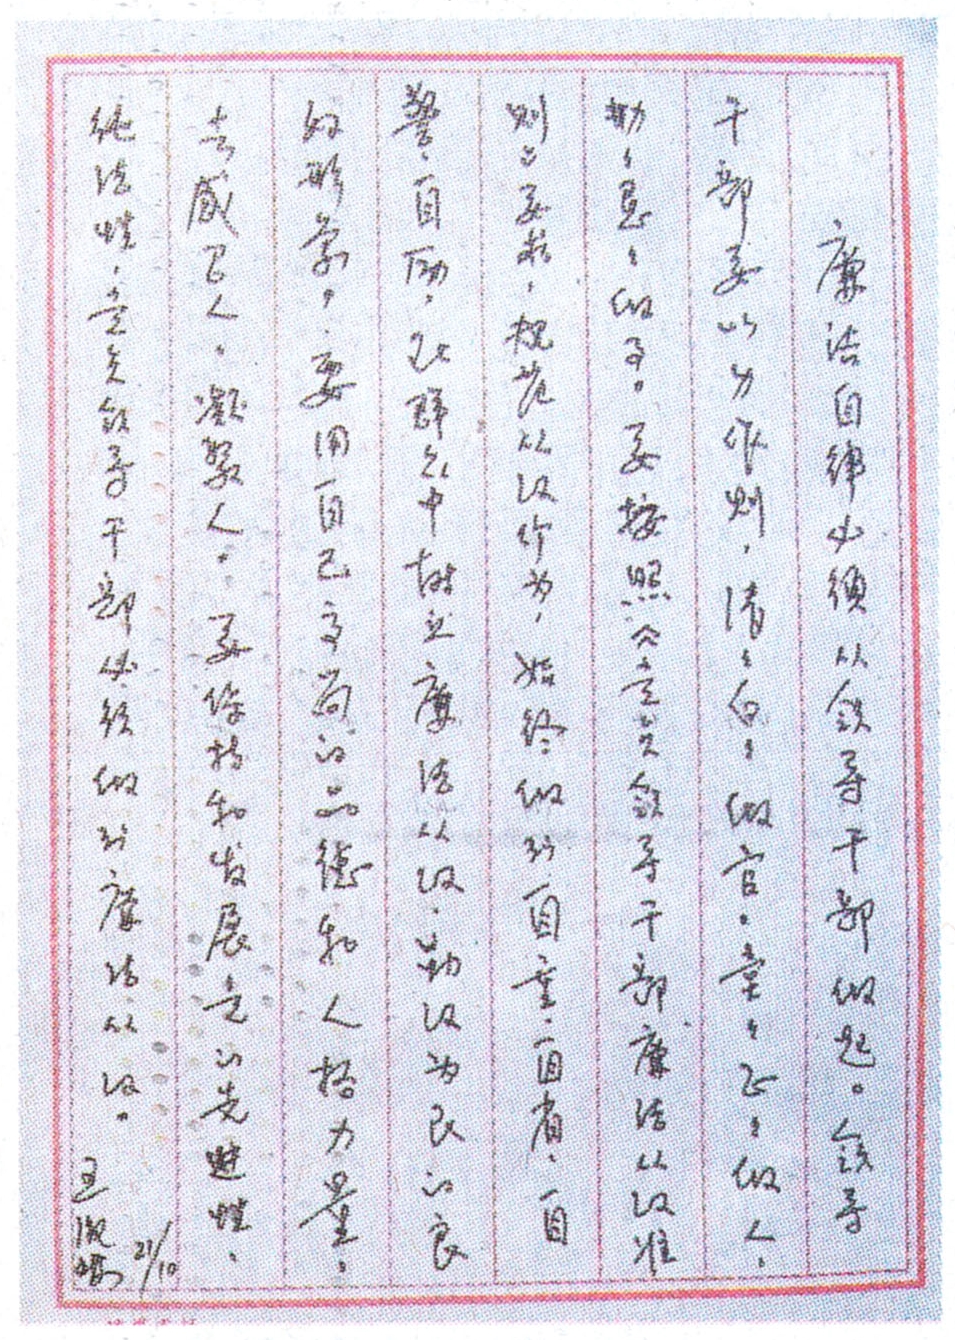 廉洁自律必须从领导干部做起。领导
干部要以身作则，清清白白做官。堂堂正正做人，
勤勤恳恳做事。要按照《党员领导干部廉洁从政准
则》要求，规范从政行为，始终做到自重、自省、自
警、自励，在群众中树立廉洁从政、勤政为民的良
好形象。要用自己高尚的品德和人格力量。
去感召人。凝聚人。要保持和发展党的先进性、
纯洁性，党员领导干部必须做到廉洁从政。
王
21/10